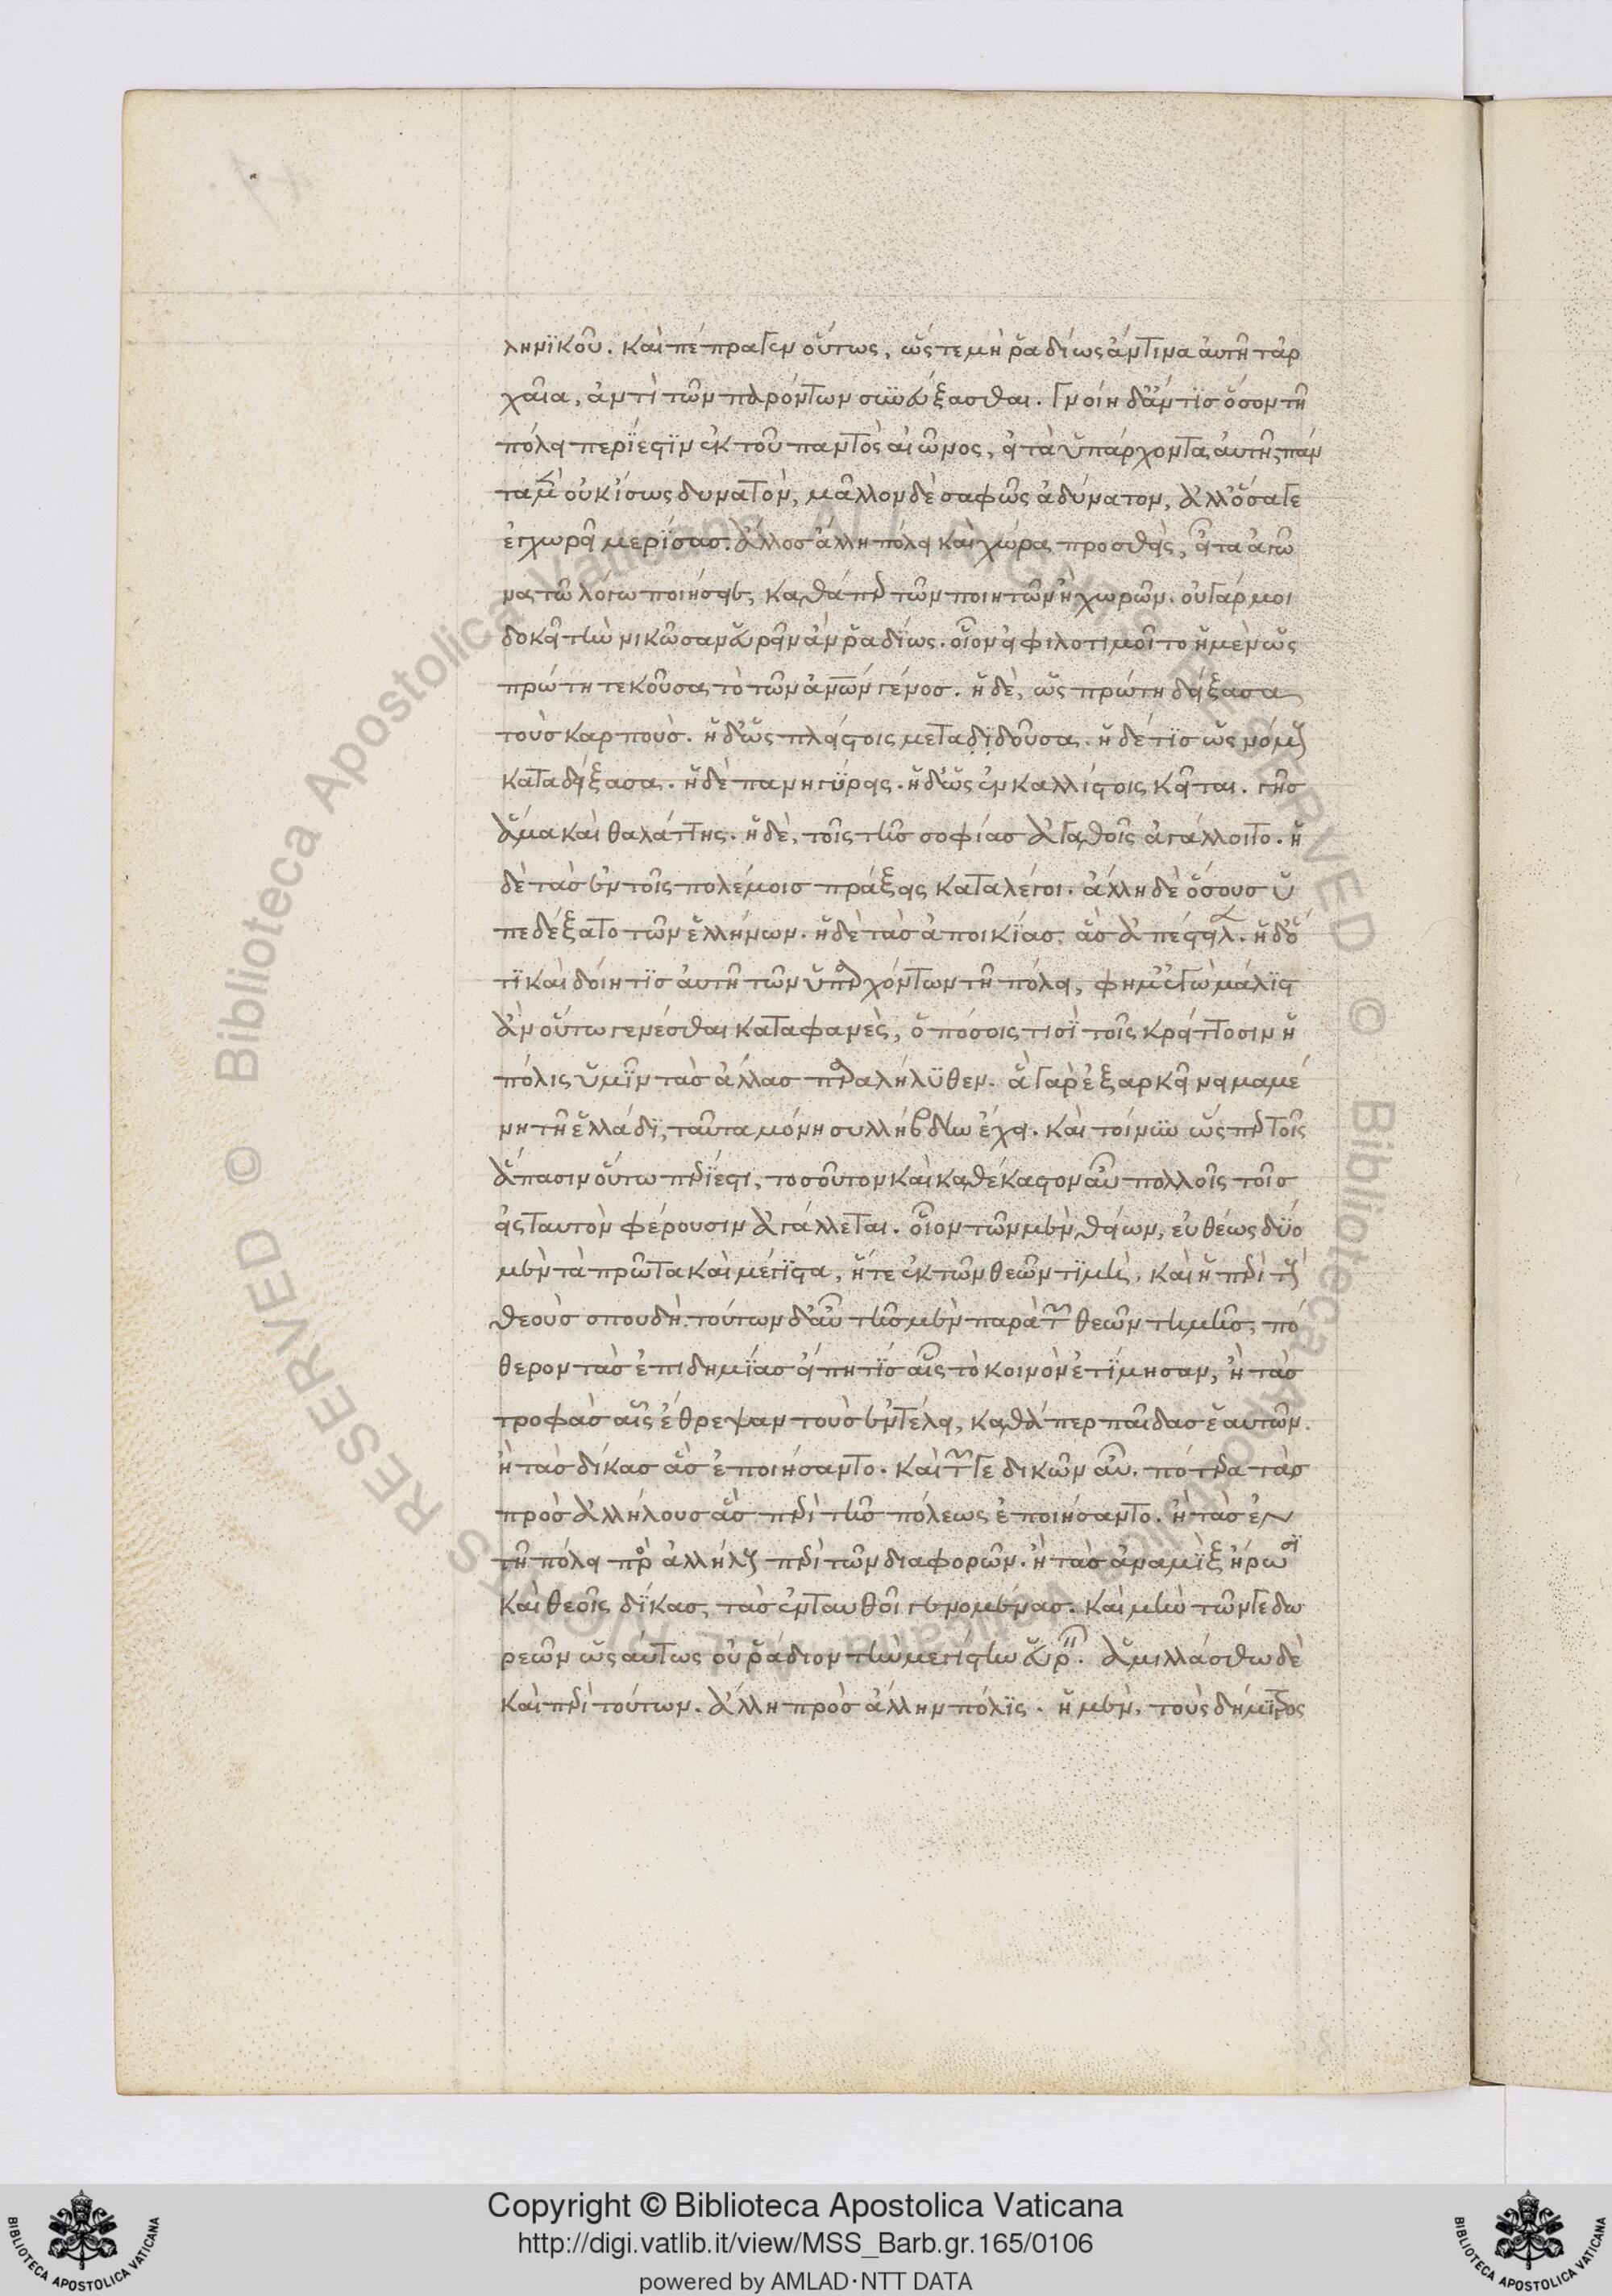 ληνϊκοῦ. καὶ πέπραγεν οὕτως, ὥστε μὴ ῥαδίως ἄν τινα αὐτῆ τἀρ
χαῖα, ἀντὶ τῶν παρόντων συνεύξασθαι. γνοίη δ' ἄν τϊσ ὅσον τῆ
πόλει περίεστϊν ἐκ τοῦ παντὸς αἰῶνος, εἰ τὰ ὑπάρχοντα αὐτῆς πάν
τα μὲν οὐκ ἴσως δυνατὸν, μᾶλλον δὲ σαφῶς ἀδύνατον, ἀλλ' ὅσα γε
ἐγχωρεῖ μερίσασ. ἄλλοσ ἄλλη πόλει καὶ χώρα προσθεὶς, εἶτα ἀγῶ
νας τῶ λόγω ποιήσειεν, καθάπερ τῶν ποιητῶν ἢ χωρῶν. οὐ γάρ μοι
δοκεῖ τὴν νικῶσαν εὑρεῖν ἂν ῥαδίως. οἷον εἰ φιλοτιμοῖτο ἡ μὲν ὡς
πρώτη τεκοῦσα τὸ τῶν ἀνων γένοσ. ἡ δὲ, ὡς πρώτη δείξασα
τοὺσ καρποὺσ. ἡ δ' ὡς πλείστοις μεταδϊδοῦσα. ἡ δέ τϊσ ὡς νόμους
καταδείξασα. ἡ δὲ πανηγύρεις. ἡ δ' ὡς ἐν καλλίστοις κεῖται. γῆσ
ἅμα καὶ θαλάττης. ἡ δὲ, τοῖς τῆσ σοφίασ ἀγαθοῖς ἀγάλλοιτο. ἡ
δὲ τὰσ ἐν τοῖς πολέμοισ πράξεις καταλέγοι. ἄλλη δὲ ὅσουσ ὑ
πεδέξατο τῶν ἑλλήνων. ἡ δὲ τὰσ ἀποικίασ, ἃσ ἀπέστειλ. ἡ δ' ὅ
τϊ καὶ δοίη τϊσ αὐτῆ τῶν ὑπαρχόντων τῆ πόλει, φημὶ ἐγὼ μάλϊστ
ἂν οὕτω γενέσθαι καταφανὲς, ὁπόσοις τισῒ τοῖς κρείττοσιν ἡ
πόλις ὑμῖν τὰσ ἄλλασ παραλήλυθεν. ἃ γὰρ ἐξαρκεῖ νειμαμέ
νη τῆ ἑλλάδϊ, ταῦτα μόνη συλλήβδην ἔχει. καὶ τοίνυν ὥσπερ τοῖς
ἅπασιν οὕτω περΐεστι, τοσοῦτον καὶ καθ' ἕκαστον αὖ πολλοῖς τοῖσ
εἰς ταυτὸν φέρουσιν ἀγάλλεται. οἷον τῶν μὲν θείων, εὐθέως δύο
μὲν τὰ πρῶτα καὶ μέγϊστα, ἥ τε ἐκ τῶν θεῶν τϊμὴ, καὶ ἡ περὶ τοὺς
θεοὺσ σπουδή. τούτων δ' αὖ τῆσ μὲν παρὰ τῶν θεῶν τιμῆσ, πό
θερον τὰσ ἐπιδημίασ εἴπη τϊσ αἷς τὸ κοινὸν ἐτίμησαν, ἢ τὰσ
τροφὰσ αἷς ἔθρεψαν τοὺσ ἐν τέλει, καθάπερ παῖδασ ἑαυτῶν.
ἢ τὰσ δίκασ ἃσ ἐποιήσαντο. καὶ τῶν γε δικῶν αὖ. πότερα τὰσ
πρὸσ ἀλλήλουσ ἃσ περὶ τῆσ πόλεως ἐποιήσαντο. ἢ τὰσ ἐν
τῆ πόλει πρὸς ἀλλήλους περὶ τῶν διαφορῶν. ἢ τὰσ ἀναμὶξ ἥρωσϊ
καὶ θεοῖς δίκασ, τὰσ ἐνταυθοῖ γενομένασ. καὶ μὴν τῶν γε δω
ρεῶν ὡσαύτως οὐ ῥάδιον τὴν μεγίστην εὑρεῖν. ἁμιλλάσθω δὲ
καὶ περὶ τούτων. ἄλλη πρὸσ ἄλλην πόλϊς. ἡ μὲν, τοὺς δήμητρος
Copyright © Biblioteca Apostolica Vaticana
http://digi.vatlib.it/view/MSS_Barb.gr.165/0106
powered by AMLAD·NTT DATA